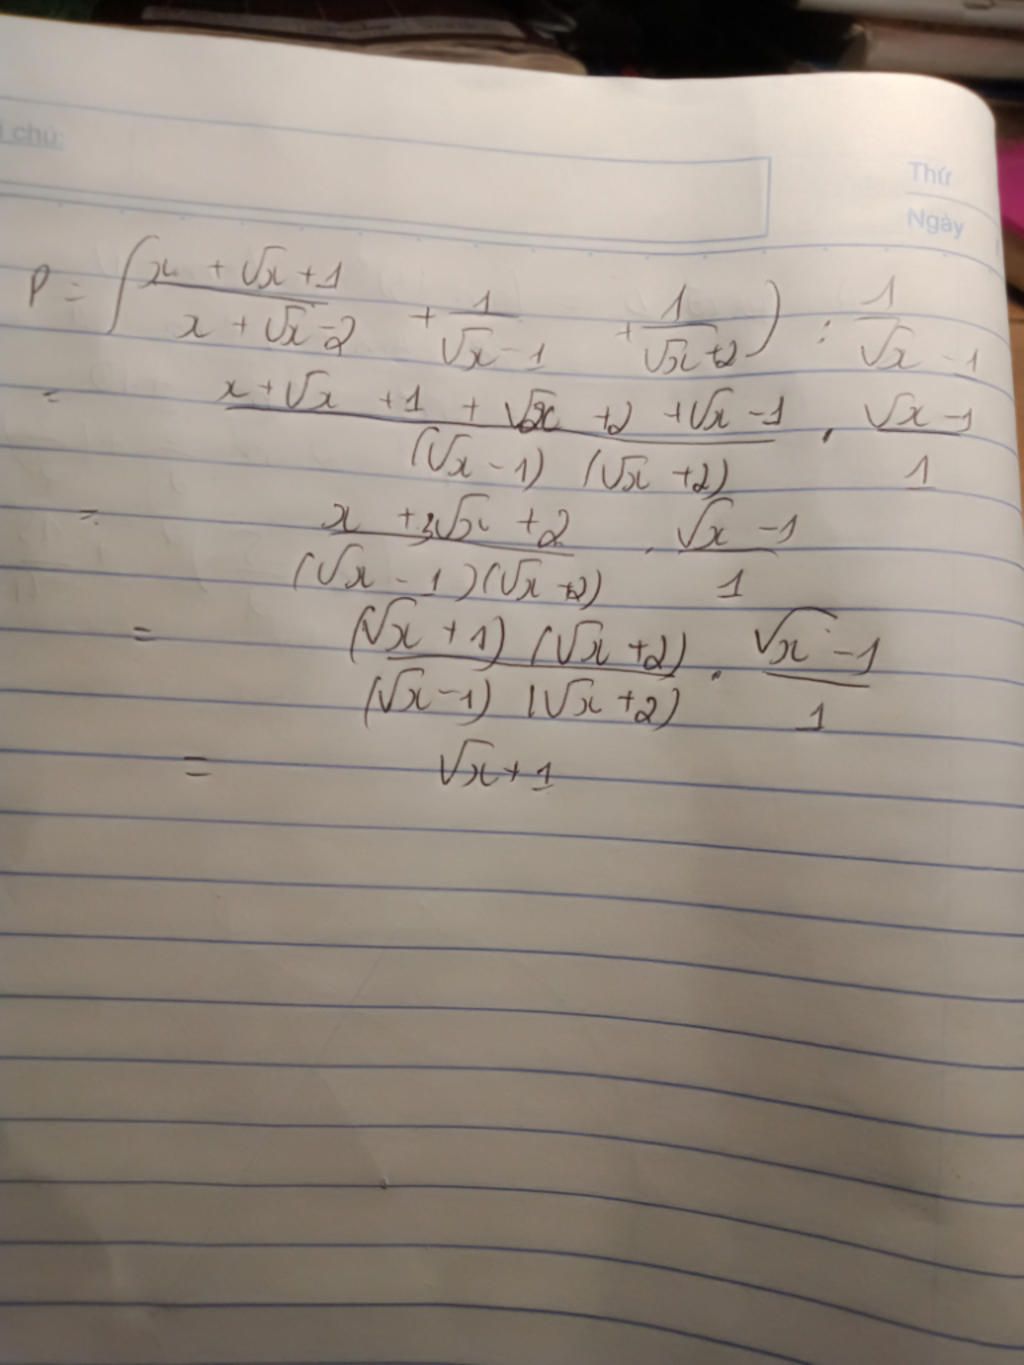 i chú:
Thứ
Ngày
P = (x + √x + 1 / x + √x - 2 + 1 / √x - 1 + 1 / √x + 2) : 1 / √x - 1
= x + √x + 1 + √x + 2 + √x - 1 / (√x - 1) (√x + 2) . √x - 1 / 1
= x + 3√x + 2 / (√x - 1)(√x + 2) . √x - 1 / 1
= (√x + 1) (√x + 2) / (√x - 1) (√x + 2) . √x - 1 / 1
= √x + 1